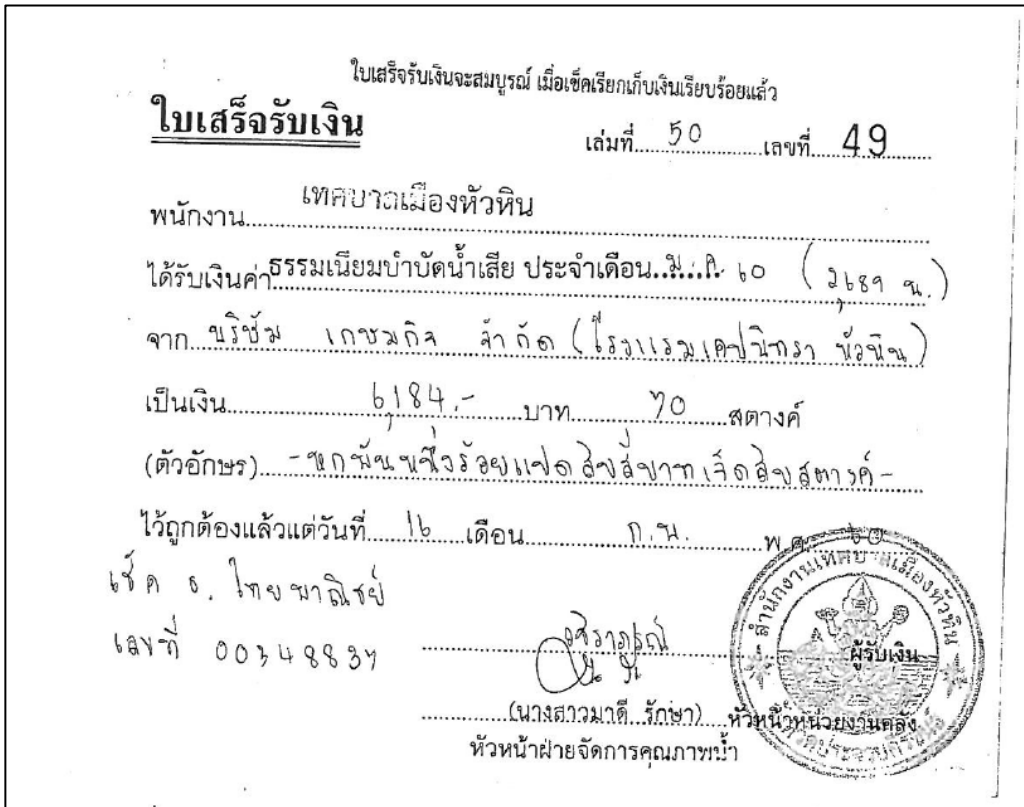 ใบเสร็จรับเงินจะสมบูรณ์ เมื่อเช็คเรียกเก็บเงินเรียบร้อยแล้ว
ใบเสร็จรับเงิน
เล่มที่ 50 เลขที่ 49
พนักงาน เทศบาลเมืองหัวหิน
ได้รับเงินค่าธรรมเนียมบำบัดน้ำเสีย ประจำเดือน ม.ค. 60 (2,689 น.)
จาก บริษัท เกษมกิจ จำกัด (โรงแรมเคปนิทรา หัวหิน)
เป็นเงิน 6,184.- บาท 70 สตางค์
(ตัวอักษร) - หกพันหนึ่งร้อยแปดสิบสี่บาทเจ็ดสิบสตางค์ -
ไว้ถูกต้องแล้วแต่วันที่ 16 เดือน ก.พ. พ.ศ. 60
เช็ค ธ. ไทยพาณิชย์
เลขที่ 00348837
ผู้รับเงิน
(นางสาวมาดี รักษา) หัวหน้าหน่วยงานคลัง
หัวหน้าฝ่ายจัดการคุณภาพน้ำ
สำนักงานเทศบาลเมืองหัวหิน